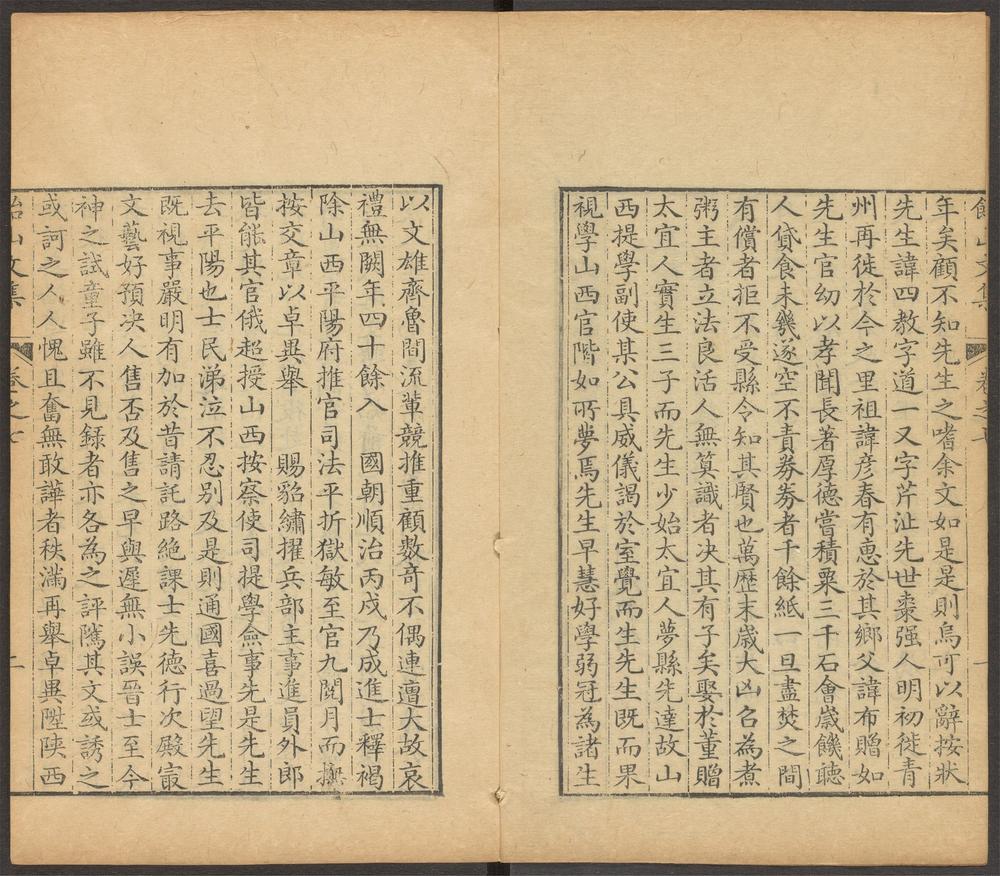 年矣顧不知先生之嗜余文如是是則烏可以辭按狀
先生諱四教字道一又字芹沚先世棗强人明初徙青
州再徙於今之里祖諱彦春有恵於其鄉父諱布贈如
先生官幼以孝聞長著厚德嘗積粟三千石會嵗饑聽
人貸食未幾遂空不責券券者千餘紙一旦盡焚之間
有償者拒不受縣令知其賢也萬歷末嵗大凶召為煮
粥主者立法良活人無算識者决其有子矣娶於董贈
太宜人實生三子而先生少始太宜人夢縣先達故山
西提學副使其公具威儀謁於室覺而生先生既而果
視學山西官階如所夢焉先生早慧好學弱冠為諸生
以文雄齊魯間流輩競推重顧數奇不偶連遭大故哀
禮無闕年四十餘入　國朝順治丙戍乃成進士釋褐
除山西平陽府推官司法平折獄敏至官九閱月而撫
按交章以卓異舉　　賜貂繡擢兵部主事進員外郎
皆能其官俄超授山西按察使司提學僉事先是先生
去平陽也士民涕泣不忍别及是則通國喜過望先生
既視事嚴明有加於昔請託路絶課士先德行次殿㝡
文藝好預决人售否及售之早與遲無小誤晉士至今
神之試童子雖不見録者亦各為之評隲其文或誘之
或訶之人人愧且奮無敢譁者秩滿再舉卓異陞陝西
飴山文集　卷之七　二